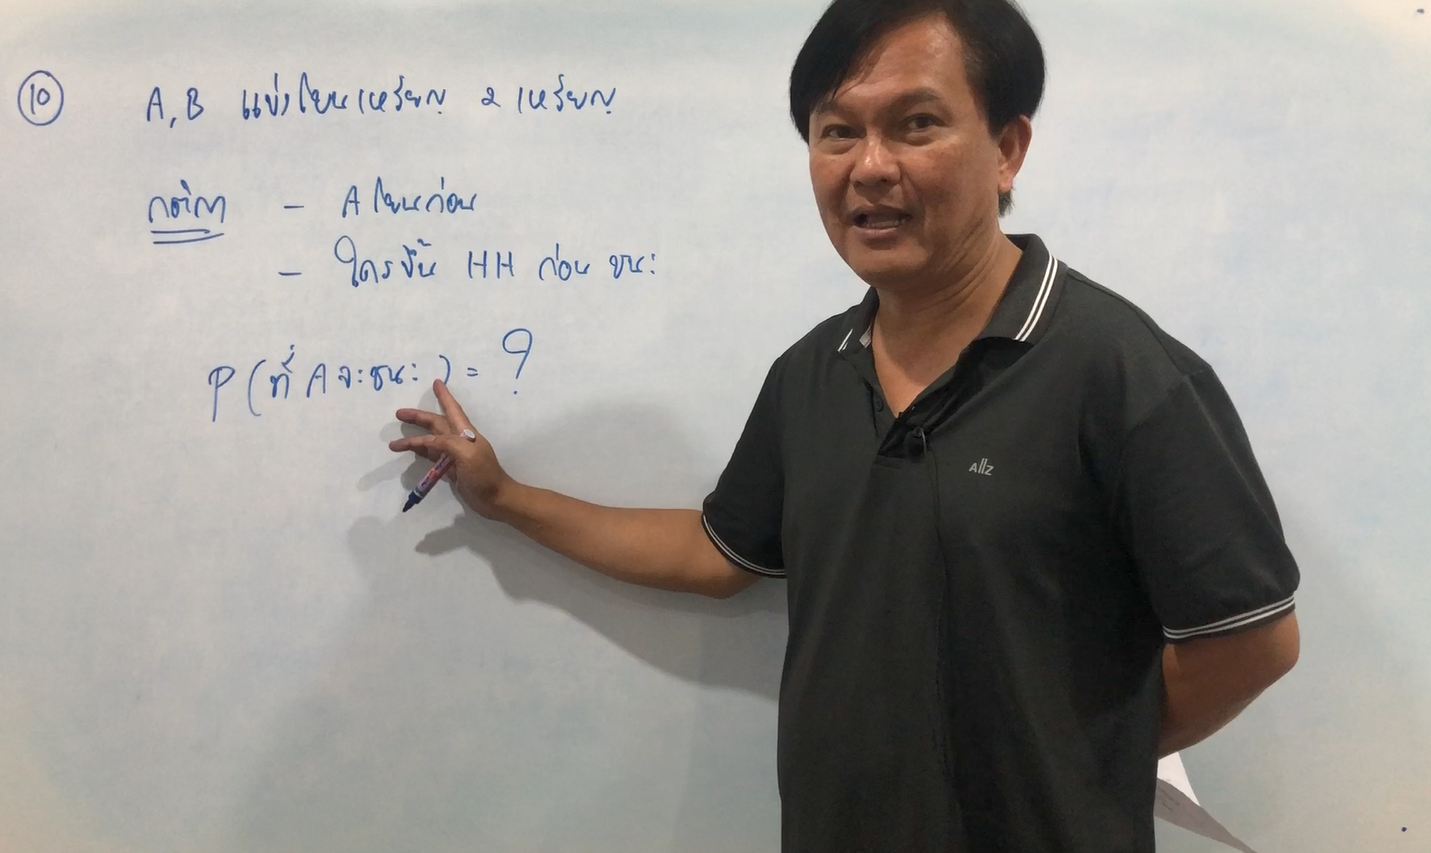 10 A, B แข่งโยนเหรียญ 2 เหรียญ
กติกา - A โยนก่อน
- ใครขึ้น HH ก่อน ชนะ
P (ที่ A จะชนะ) = ?
AllZ